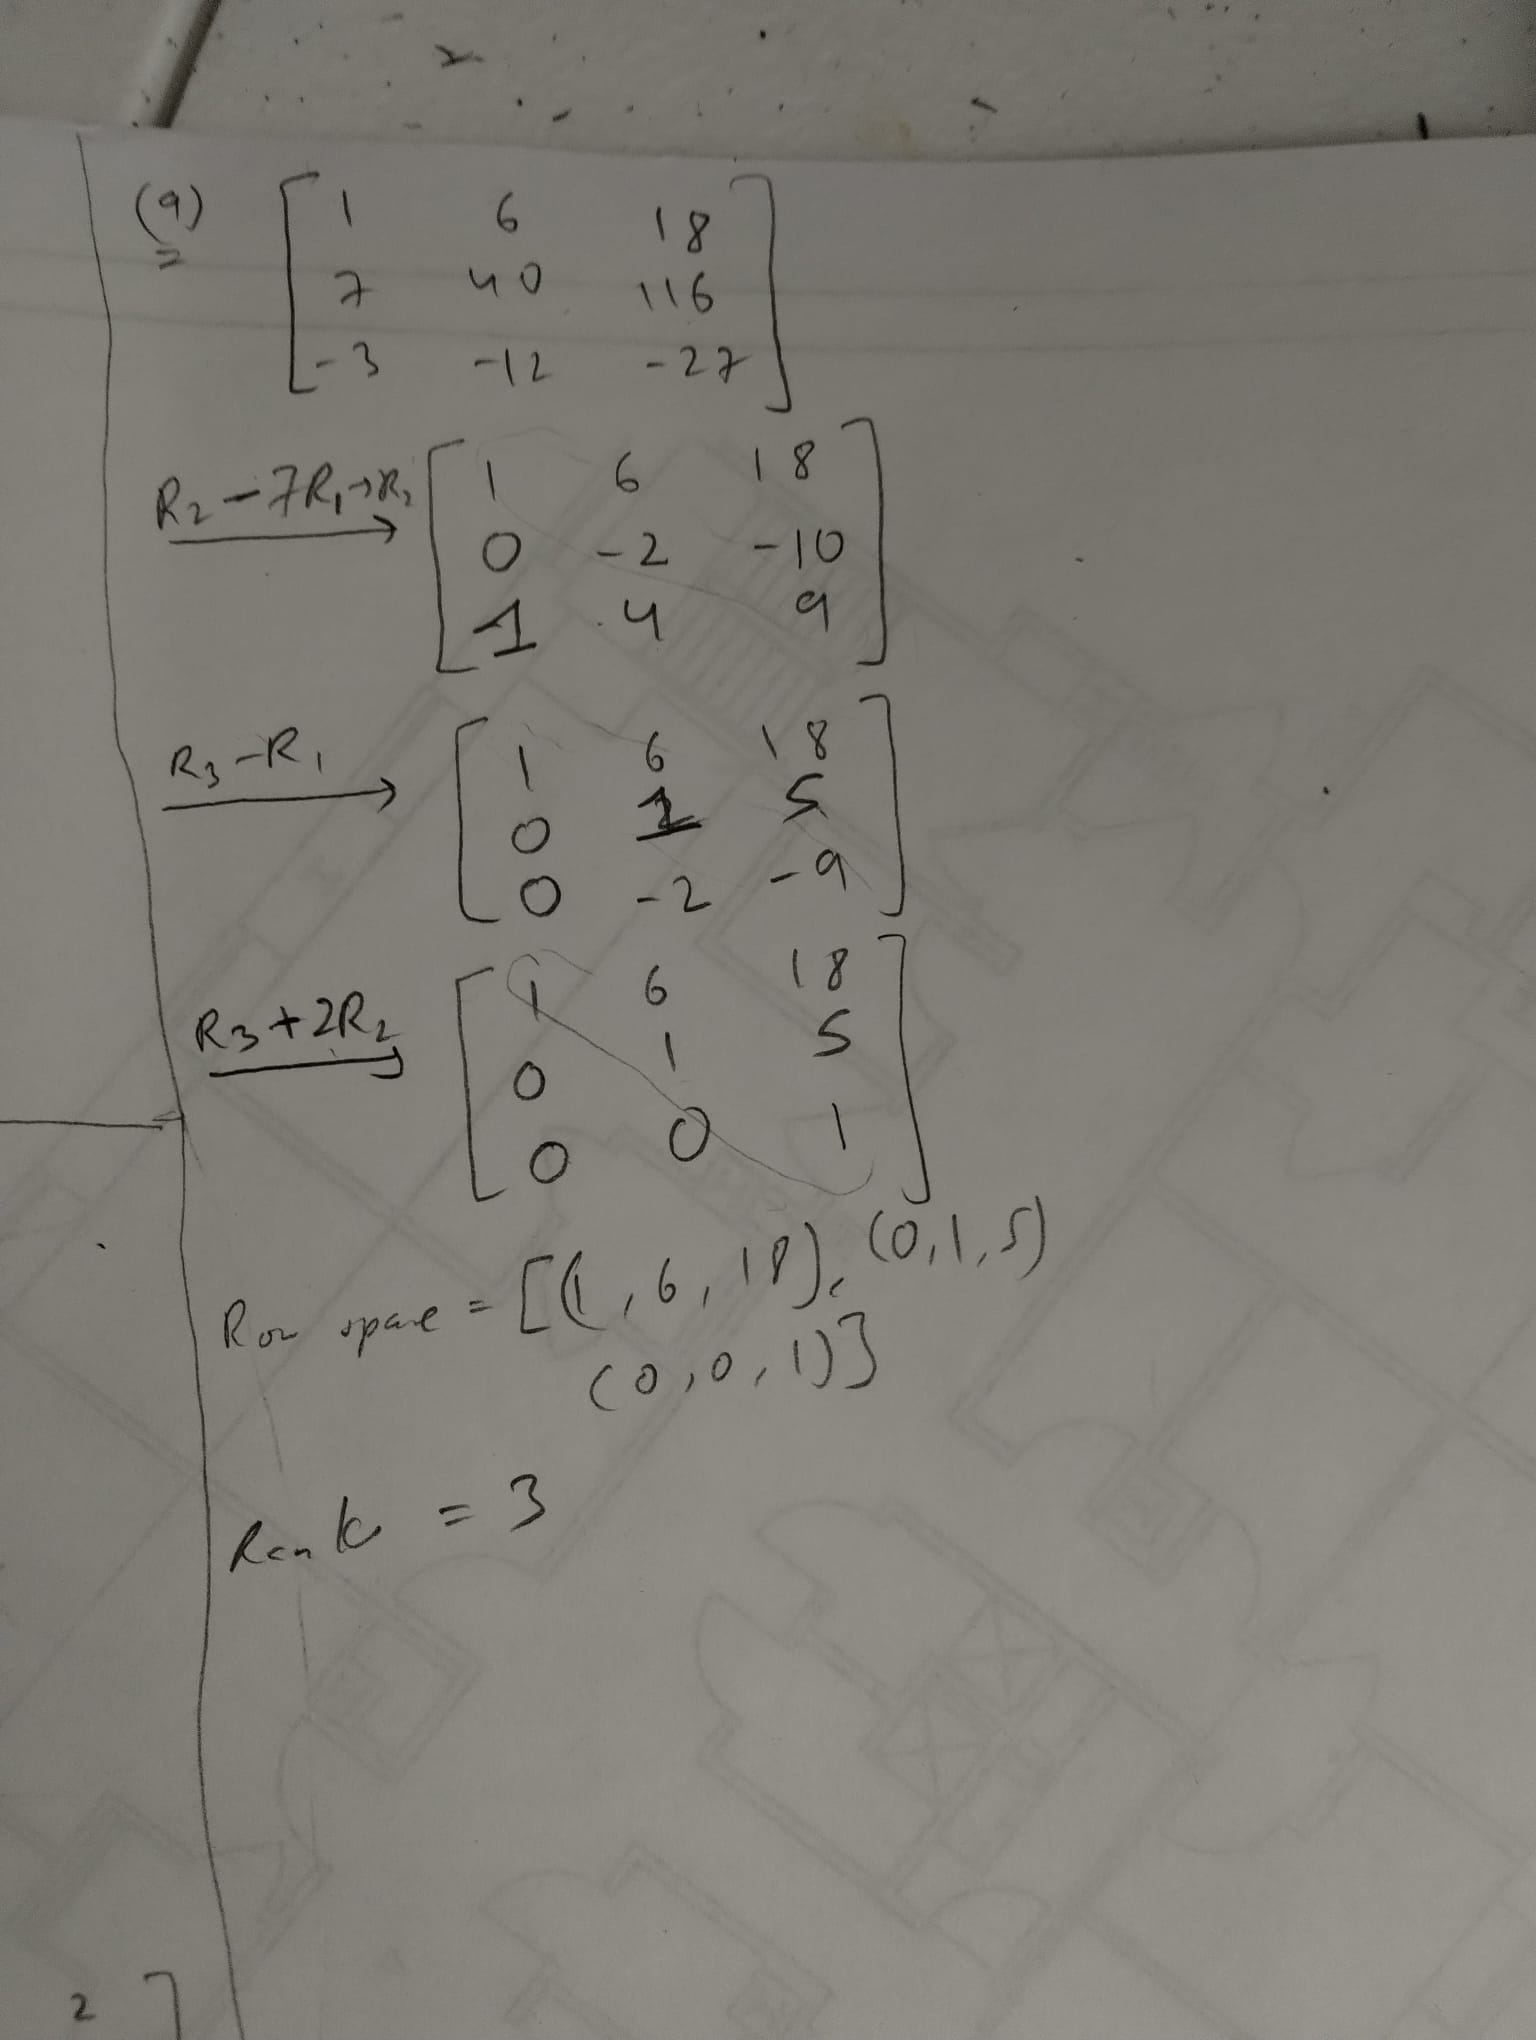 (9) [ 1 6 18
7 40 116
-3 -12 -27 ]
R2 - 7R1 → R2 [ 1 6 18
0 -2 -10
1 4 9 ]
R3 - R1 → [ 1 6 18
0 1 5
0 -2 -9 ]
R3 + 2R2 → [ 1 6 18
0 1 5
0 0 1 ]
Row space = [(1, 6, 18), (0, 1, 5)
(0, 0, 1)}
Rank = 3
2 ]